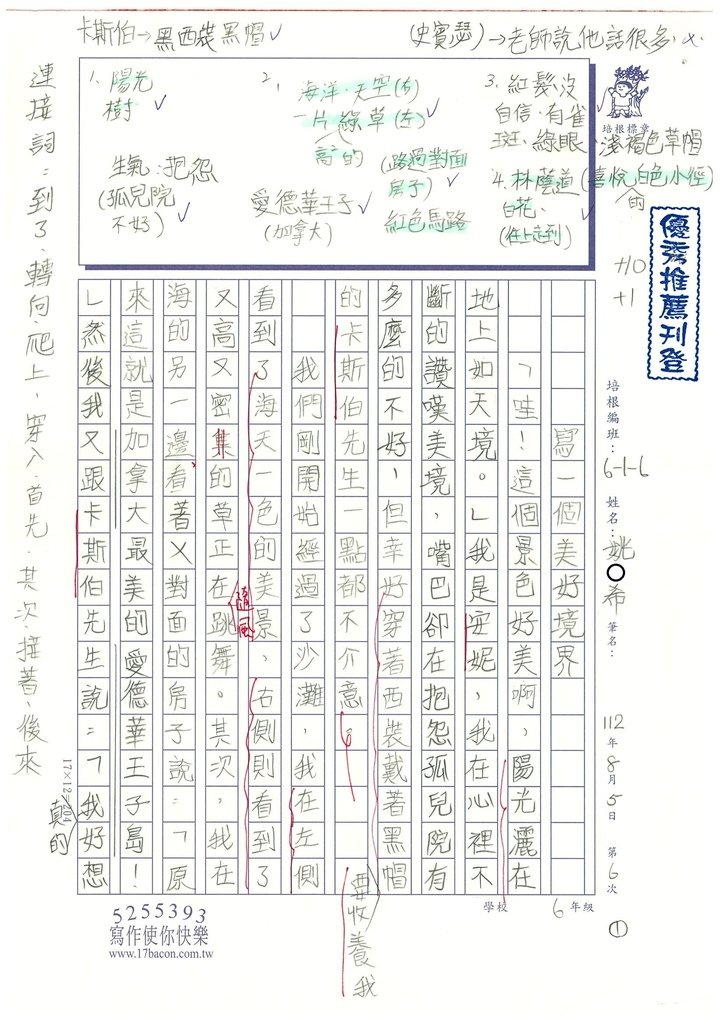 卡斯伯→黑西裝黑帽✓
(史賓瑟)→老師說他話很多.
1. 陽光
樹✓
生氣:抱怨
(孤兒院
不好)✓
2. 海洋.天空(右)
一片綠草(左)✓
高的
愛德華王子✓
(加拿大)
(路過對面
房子)✓
紅色馬路
3. 紅髮沒
自信.有雀
斑、綠眼、淺褐色草帽
4. 林蔭道(喜悅白色小徑)
的
白花、
(往上走到)
連接詞:到了、轉向、爬上,穿入.首先.其次.接著、後來
培根標章
優秀推薦刊登
+10
+1
培根編班:6-1-6 姓名:姚○希 筆名:
112年8月5日 第6次
①
學校 6年級
寫一個美好境界
「哇!這個景色好美啊,陽光灑在
地上如天境。」我是安妮,我在心裡不
斷的讚嘆美境,嘴巴卻在抱怨孤兒院有
多麼的不好,但幸好穿著西裝戴著黑帽
要收養我
的卡斯伯先生一點都不介意
我們剛開始經過了沙灘,我在左側
看到了海天一色的美景、右側則看到了
又高又密集的草正在跳舞。其次,我在
隨風
海的另一邊看著ㄨ對面的房子說:「原
來這就是加拿大最美的愛德華王子島!
」然後我又跟卡斯伯先生說:「我好想
真的
17×12=204
5255393
寫作使你快樂
www.17bacon.com.tw